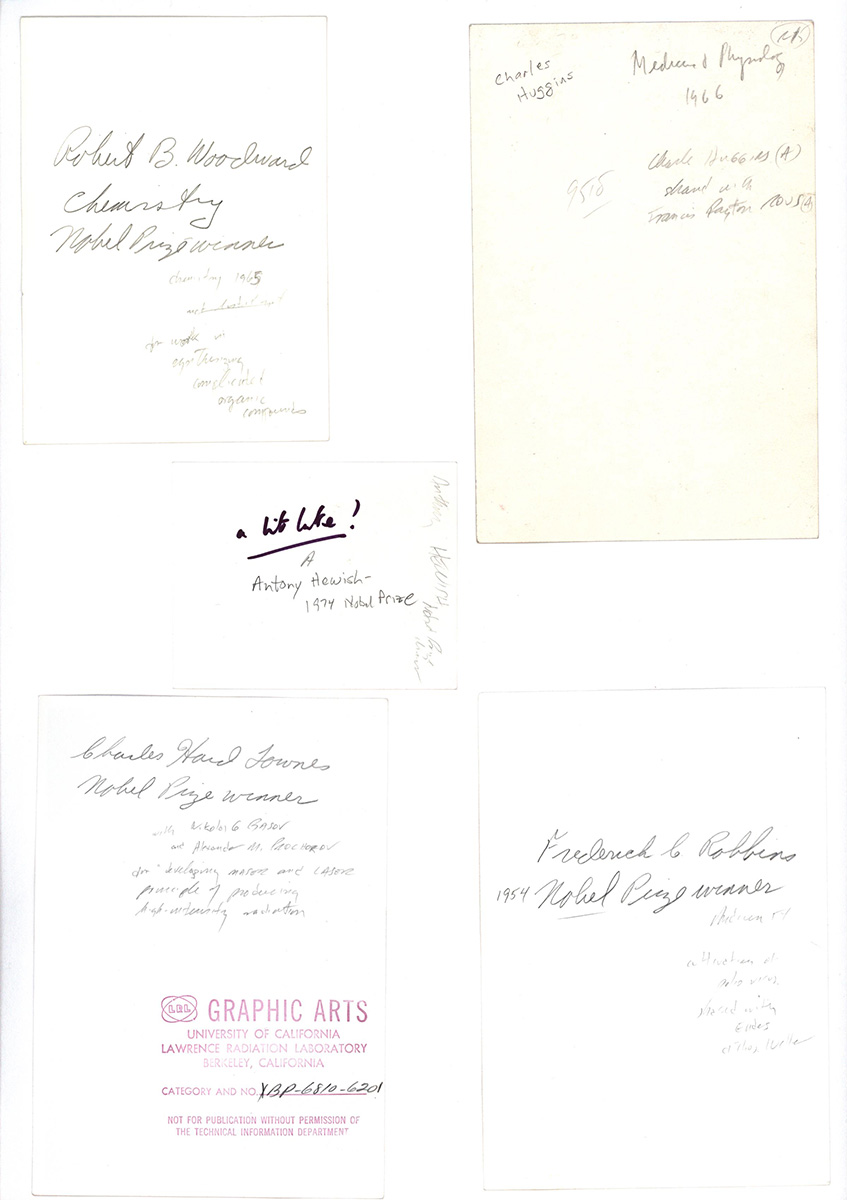 Robert B. Woodward
Chemistry
Nobel Prize winner
chemistry 1965
for work in
complicated
organic
compounds
Charles
Huggins
Medicine & Physiology
1966
Charles Huggins (A)
shared with
Francis Peyton ROUS (A)
a bit late!
A
Antony Hewish-
1974 Nobel Prize
Anthony HEWISH Nobel Prize
Charles Hard Townes
Nobel Prize winner
with Nikolai G BASOV
and Alexander M. PROCHOROV
for "developing maser and LASER
principle of producing
high-intensity radiation
LRL GRAPHIC ARTS
UNIVERSITY OF CALIFORNIA
LAWRENCE RADIATION LABORATORY
BERKELEY, CALIFORNIA
CATEGORY AND NO. XBP-6810-6201
NOT FOR PUBLICATION WITHOUT PERMISSION OF
THE TECHNICAL INFORMATION DEPARTMENT
Frederick C Robbins
1954 Nobel Prize winner
Medicine 54
shared with
Enders
Weller